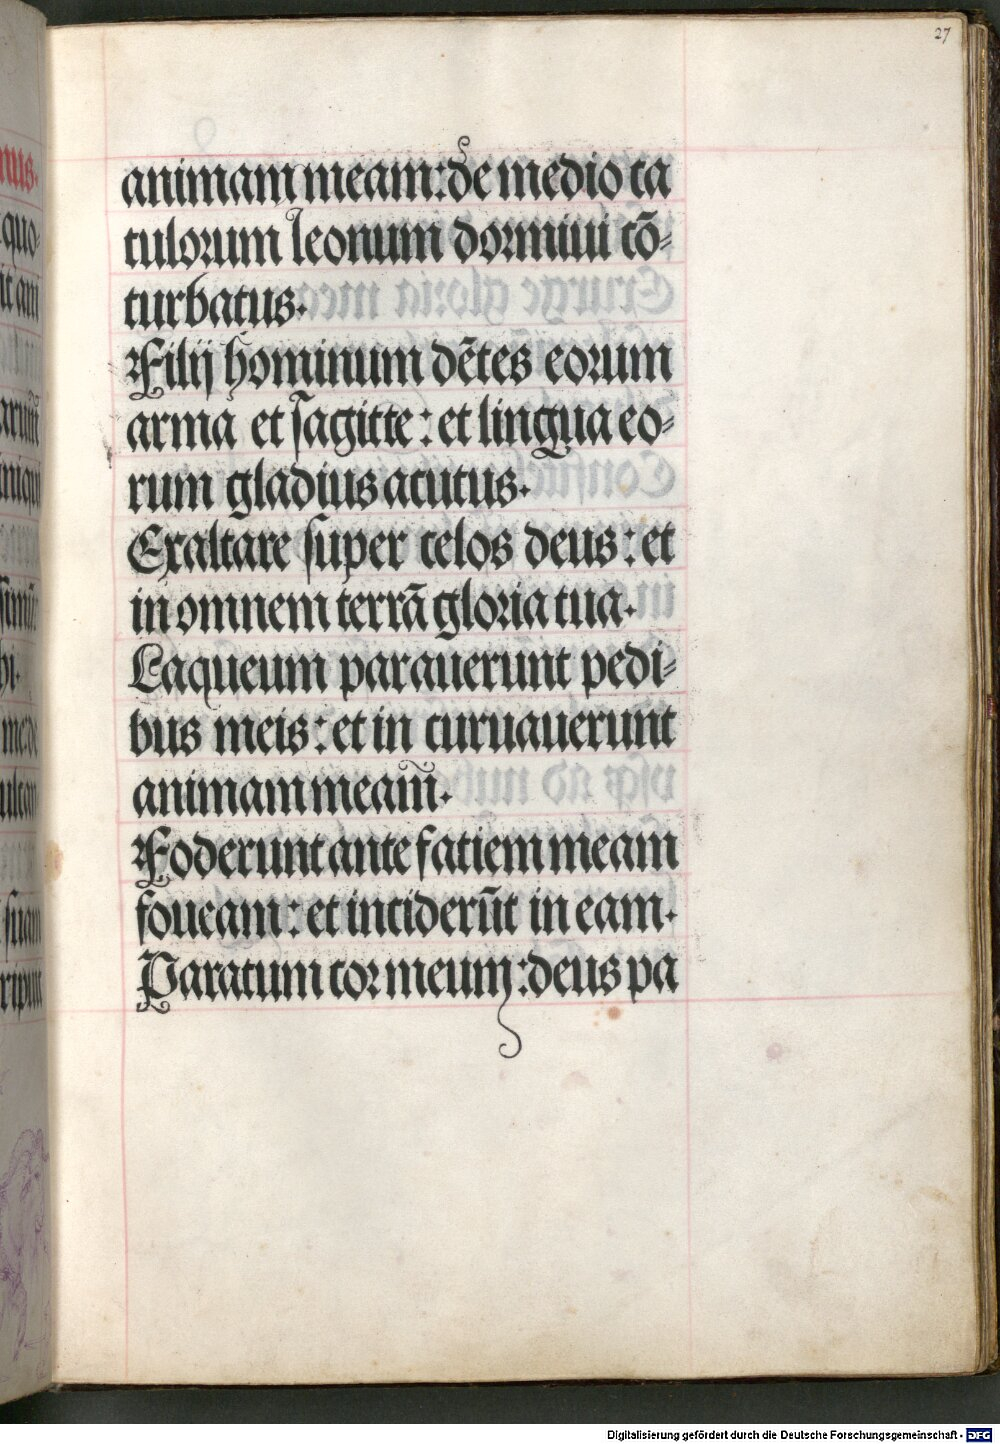 27
animam meam: de medio ca
tulorum leonum dormiui cō-
turbatus.
Filij hominum dētes eorum
arma et sagitte: et lingua eo-
rum gladius acutus.
Exaltare super celos deus: et
in omnem terrā gloria tua.
Laqueum parauerunt pedi-
bus meis: et in curuauerunt
animam meam̄.
Foderunt ante faciem meam
foueam: et inciderūt in eam.
Paratum cor meum: deus pa
Digitalisierung gefördert durch die Deutsche Forschungsgemeinschaft - DFG